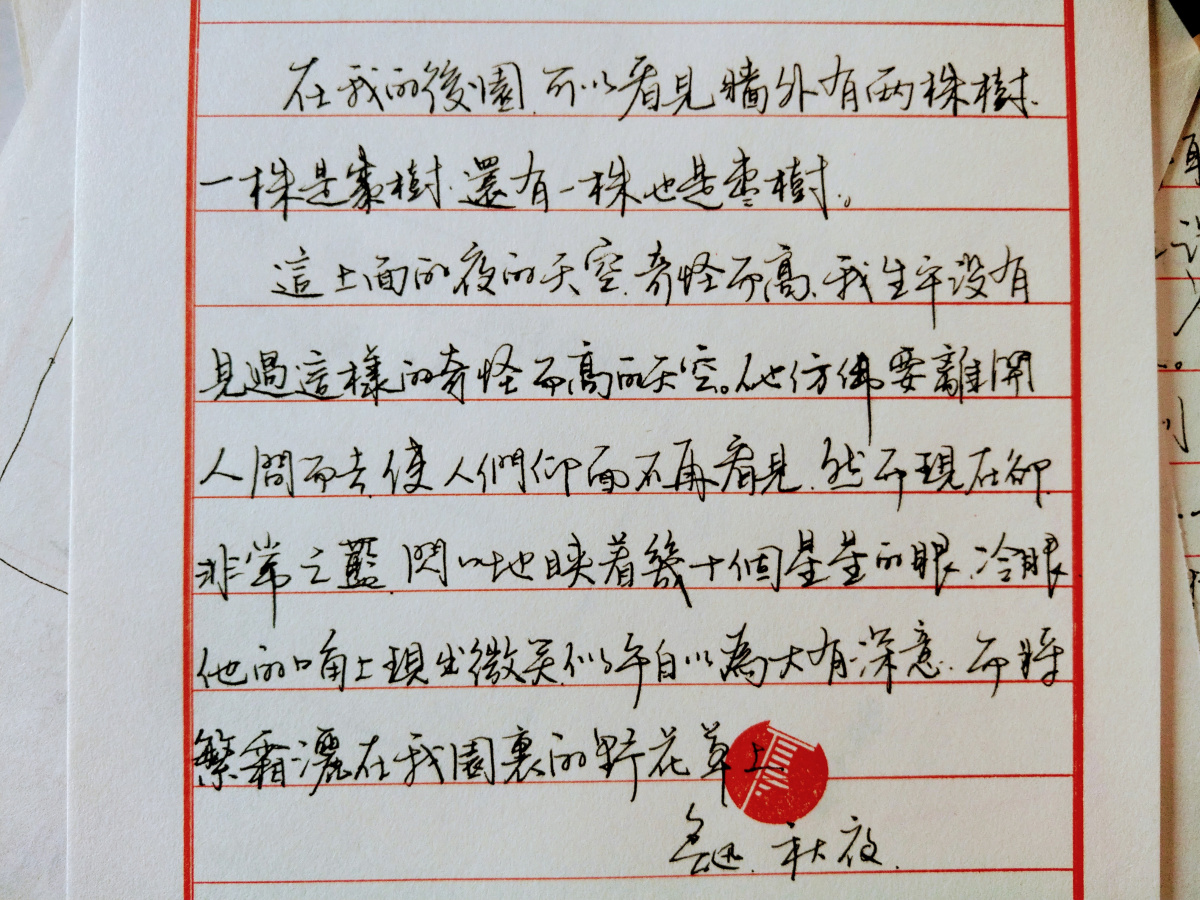 在我的後園,可以看見牆外有兩株樹,
一株是棗樹,還有一株也是棗樹。
這上面的夜的天空,奇怪而高,我生平沒有
見過這樣的奇怪而高的天空。他仿佛要離開
人間而去,使人們仰面不再看見,然而現在卻
非常之藍,閃閃地䀹着幾十個星星的眼,冷眼
他的嘴角上現出微笑,似乎自以為大有深意,而將
繁霜灑在我園裏的野花草上
魯迅.秋夜.